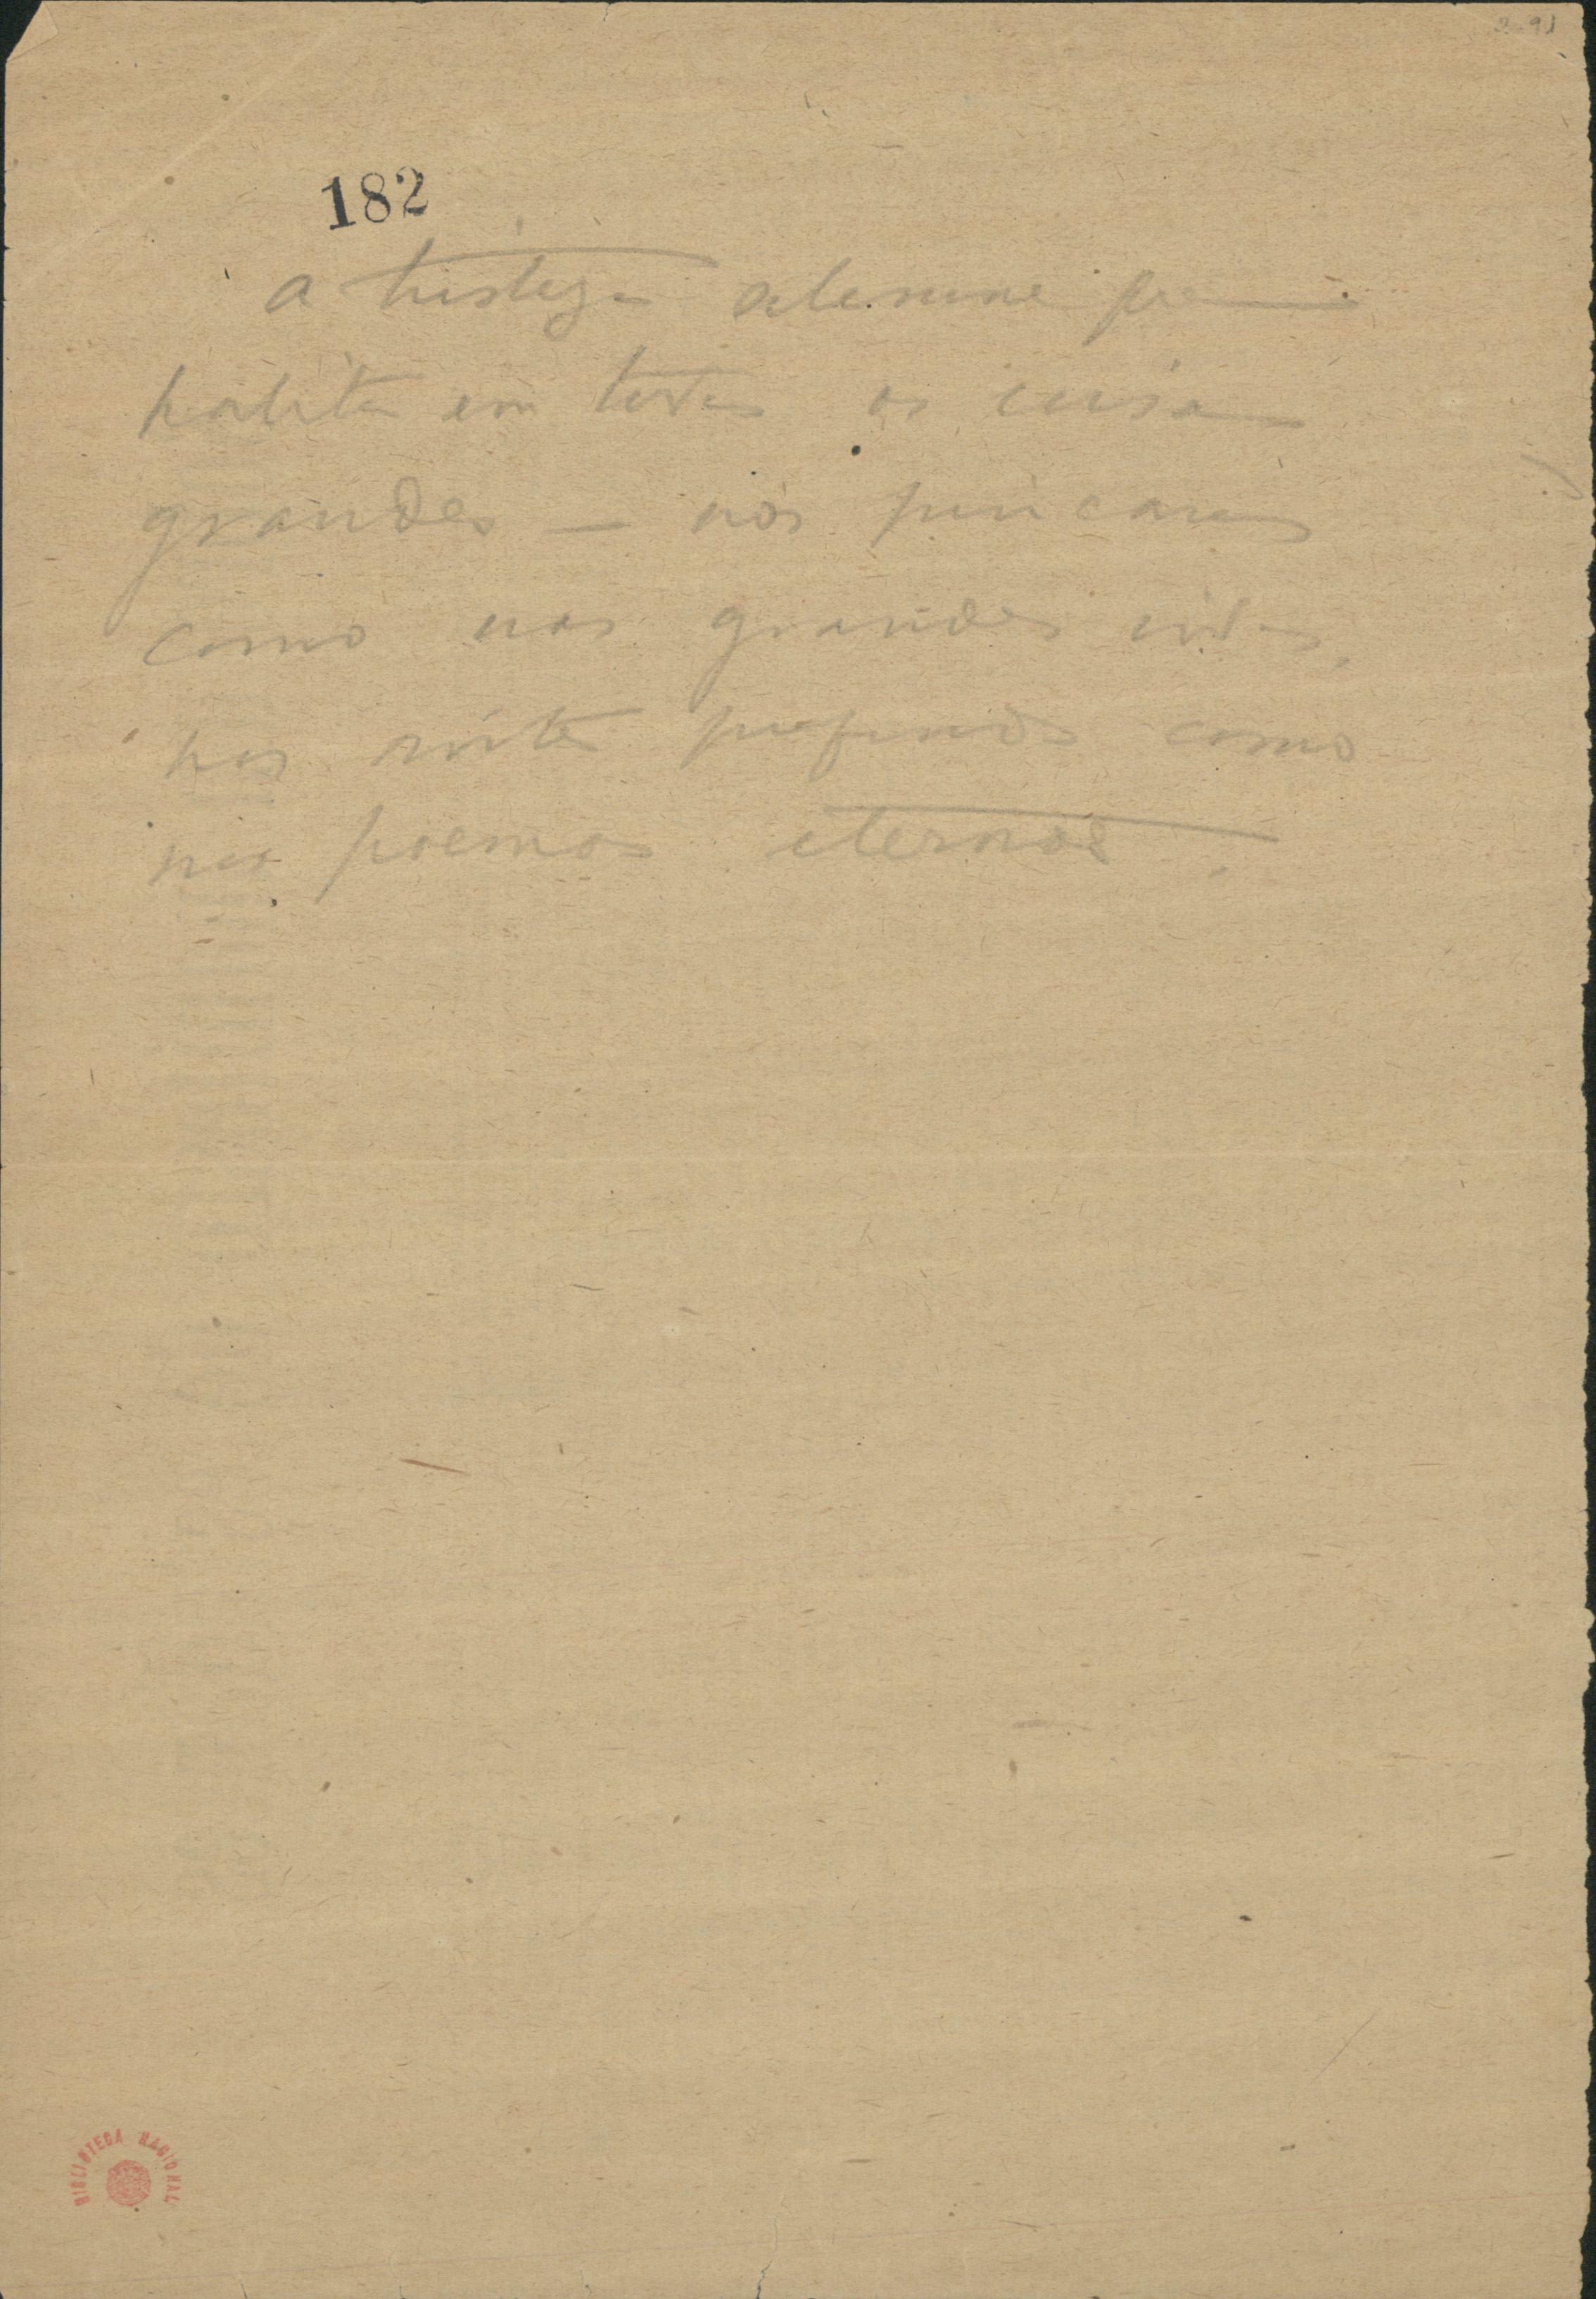 2-91
182
A tristeza solemne que
habita em todas as coisas
grandes — nos pincaros
como nas grandes vidas,
nas noites profundas como
nos poemas eternos.
BIBLIOTECA NACIONAL